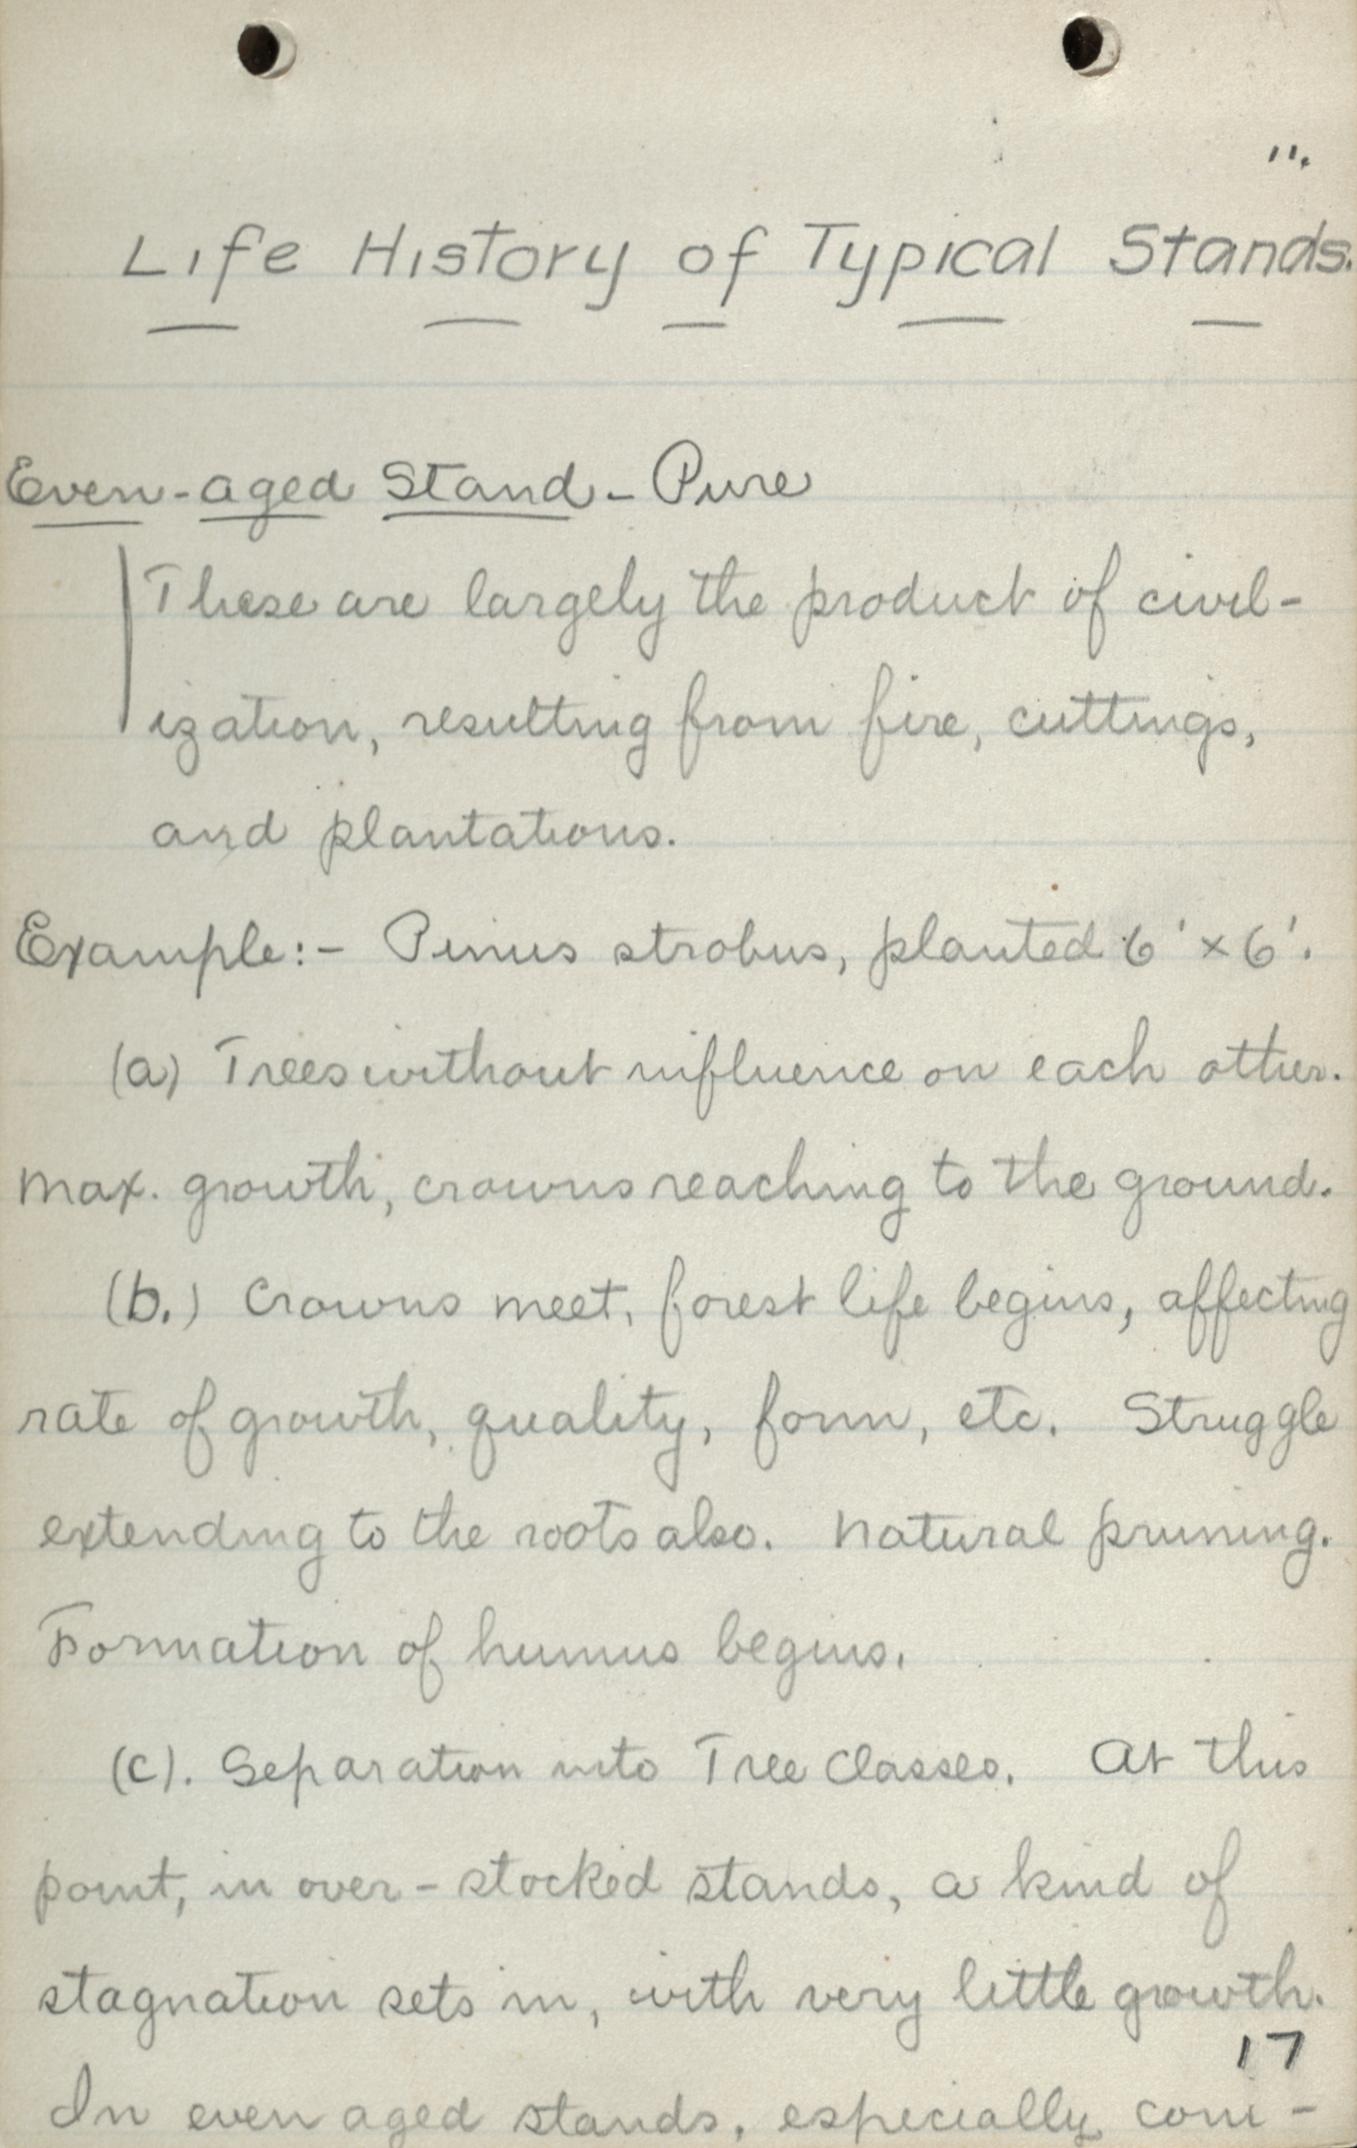 11.
Life History of Typical Stands.
Even-aged Stand - Pure
These are largely the product of civil-
ization, resulting from fire, cuttings,
and plantations.
Example:- Pinus strobus, planted 6' x 6'.
(a) Trees without influence on each other.
Max. growth, crowns reaching to the ground.
(b.) Crowns meet, forest life begins, affecting
rate of growth, quality, form, etc. Struggle
extending to the roots also. Natural pruning.
Formation of humus begins.
(c). Separation into Tree Classes. At this
point, in over-stocked stands, a kind of
stagnation sets in, with very little growth.
17
In even aged stands, especially coni-